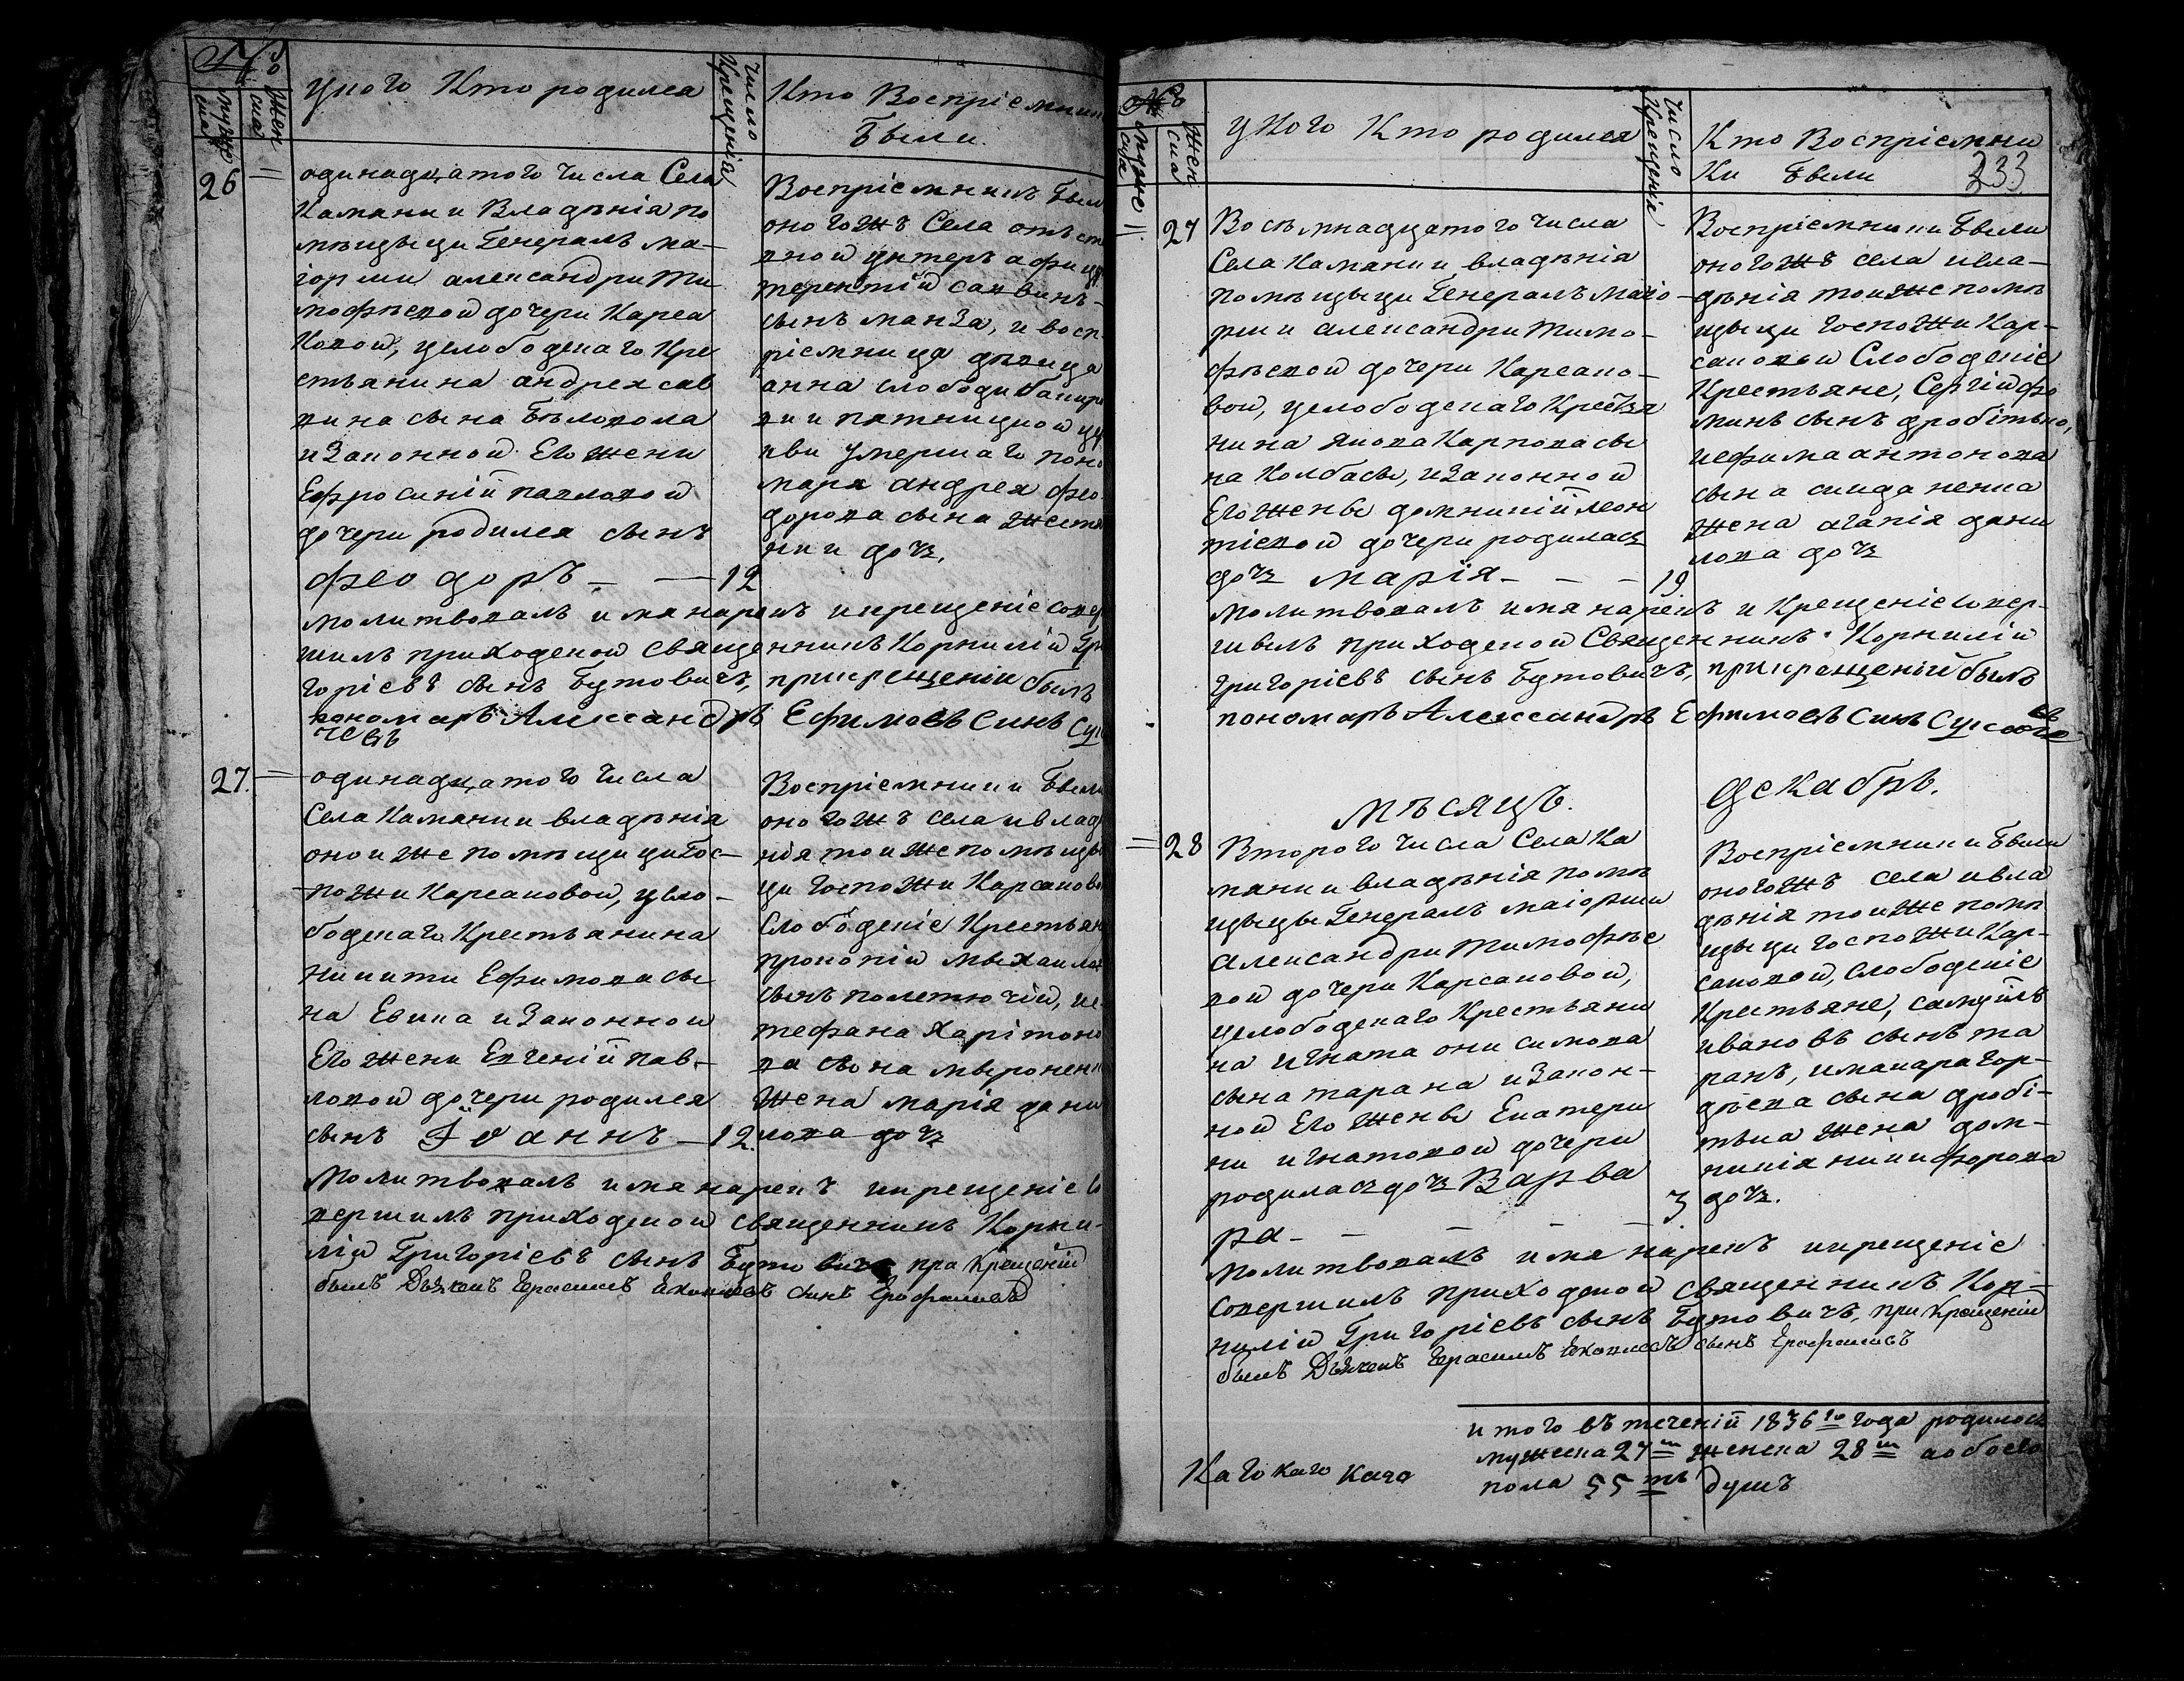 №
Мужеска
Женска
У кого Кто родился
Число Крещенія
Кто Воспріемники
Были.
26
одинадцатого Числа Села
Камянки Владѣнія по
мѣщыци Генералъ ма-
іорши александри Ти
мофѣевой дочери Карса
ковой, у слободскаго Кре
стьянина андрея сав
вина сына Бѣловола
и Законной Его жени
Ефросиніи павловой
дочери родился сынъ
феодоръ - — 12
Воспріемникъ Был
оного жъ Села отъст
вной унтеръ афиц
терентій саввинъ
сынъ манза, и восп-
ріемница дѣвица
анна слободи
ки пятницкой це
кви умершаго поно
маря андрея фео
дорова сына
дочь,
молитвовалъ имя нарекъ и крещеніе совер
шилъ приходской священникъ Корнилій Гри
горіевъ сынъ Бутовичъ, при крещеніи былъ
пономаръ Александръ Ефимовъ Синъ Сук
чевъ
27.
одинадцатого Числа
Села Камянки владѣнія
оной же помѣщици Гос-
пожи Карсаковой, у сло-
бодскаго Крестьянина
никити Ефимова сы
на Евика и Законной
Его жени Евгеніи пав-
ловой дочери родился
сынъ Іоаннъ — 12.
Воспріемники Были
оного жъ села и влад
нія той же помѣщы
ци госпожи Карсаково
Слободскіе Крестьян
прокопій мыхаилов
сынъ полетючій, и с
тефана Харітоно
ва сына мыроненк
жена марія дани
лова дочь
молитвовалъ имя нарекъ и крещеніе со
вершилъ приходской священникъ Корни-
лій Григоріевъ сынъ Бутовичъ при Крещеніи
былъ Дьячекъ Герасимъ Іяковлевъ синъ Ерофаловъ
№
Мужеска
Женска
У Кого Кто родился
Число Крещенія
Кто Воспріемни
Ки Были
233
27
Восъмнадцатого Числа
Села Камянки владѣнія
помѣщыци Генералъ маіо-
рши александри тимо-
фѣевой дочери Карсако-
вой, у слободскаго Крестья
нина якова Карпова сы
на Колбасы, и Законной
Его жены домникіи леон
тіевой дочери родилась
дочь марія - — — 19.
Воспріемники Были
оного жъ села и вла-
дѣнія той же помѣ
щыци госпожи Кар-
саковой Слободскіе
Крестьяне, Сергій фо
минъ сынъ дробітько,
и ефима антонова
сына скиданенка
жена агапія дани
лова дочь
молитвовалъ имя нарекъ и Крещеніе совер-
шылъ приходской Священникъ Корнилій
Григоріевъ сынъ Бутовичъ, при крещеніи былъ
пономаръ Александръ Ефимовъ Синъ Суксовъ
мѣсяцъ. Декабръ.
28
Второго Числа Села Ка
мянки владѣнія помѣ
щыцы Генералъ маіорши
Александри Тимофѣе
вой дочери Карсаковой,
у слободскаго Крестьяни
на игната онисимова
сына тарана и Закон-
ной Его жены Екатери
ни игнатовой дочери
родилась дочь Варва
ра - — — — 3
Воспріемники Были
оного жъ села и вла
дѣнія той же помѣ
щыци госпожи Кар-
саковой, Слободскіе
Крестьяне, самуилъ
ивановъ сынъ та
ранъ, и макара гор-
дѣева сына дробі-
тька жена дом-
никія никифорова
дочь.
молитвовалъ имя нарекъ и крещеніе
Совершилъ приходской священникъ Кор-
нилій Григоріевъ сынъ Бутовичъ, при Крещеніи
былъ Дьячекъ Герасимъ Іяковлевъ сынъ Ерофаловъ
итого въ теченіи 1836го года родилось
мужеска 27м женска 28м а обоего
пола 55ть душъ
Каго каго каго